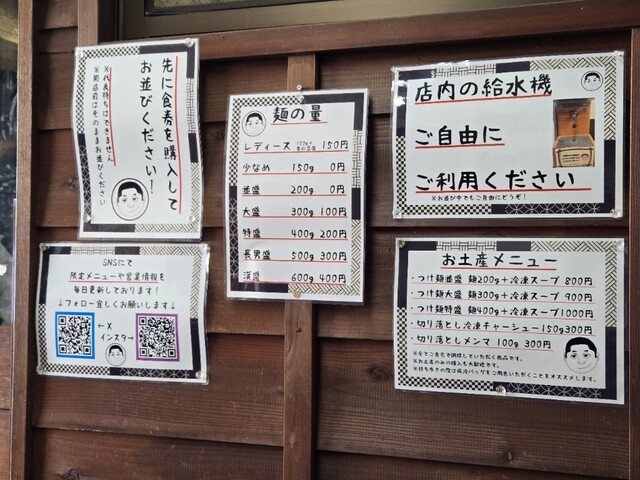 先に食券を購入して
お並びください!
※代表待ちはできません
※開店前はそのままお並びください
麺の量
レディース 150円
少なめ 150g 0円
並盛 200g 0円
大盛 300g 100円
特盛 400g 200円
長男盛 500g 300円
漢盛 600g 400円
店内の給水機
ご自由に
ご利用ください
※お並び中でもご自由にどうぞ!
SNSにて
限定メニューや営業情報を
毎日更新しております!
↓フォロー宜しくお願いします↓
←X
インスタ→
お土産メニュー
・つけ麺並盛 麺200g+冷凍スープ 800円
・つけ麺大盛 麺300g+冷凍スープ 900円
・つけ麺特盛 麺400g+冷凍スープ1000円
・切り落とし冷凍チャーシュー150g300円
・切り落としメンマ 100g 300円
※全てご自宅で調理していただく商品です。
※お土産の麺の購入も大歓迎です。
※持ち歩きの際は保冷バッグをご用意いただくことをオススメします。